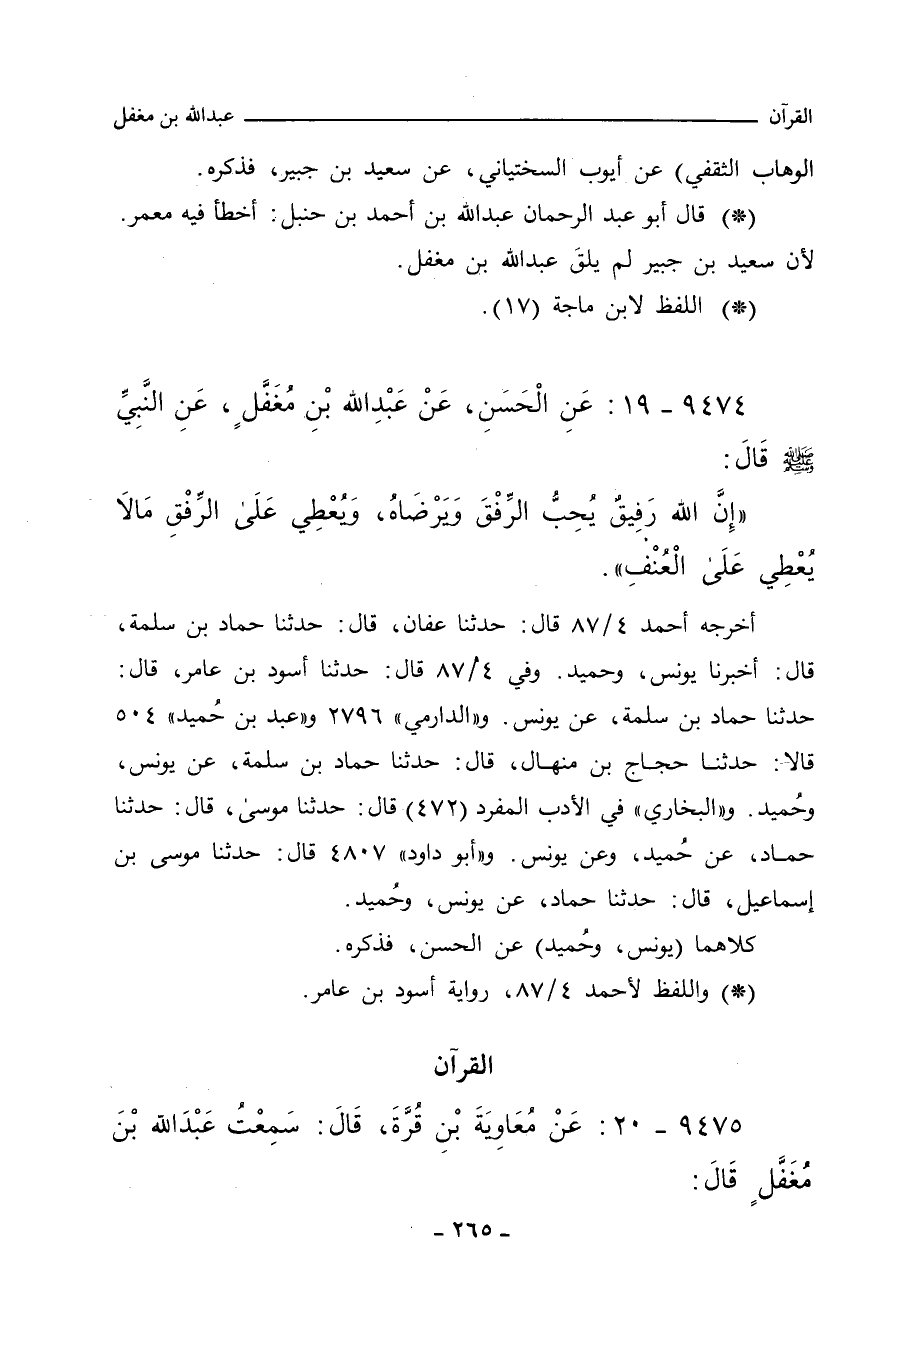 القرآن ــــــــــ عبدالله بن مغفل
الوهاب الثقفي) عن أيوب السختياني، عن سعيد بن جبير، فذكره.
(*) قال أبو عبد الرحمان عبدالله بن أحمد بن حنبل: أخطأ فيه معمر.
لأن سعيد بن جبير لم يلقَ عبدالله بن مغفل.
(*) اللفظ لابن ماجة (١٧).
٩٤٧٤ - ١٩: عَنِ الْحَسَنِ، عَنْ عَبْدِاللهِ بْنِ مُغَفَّلٍ، عَنِ النَّبِيِّ
ﷺ قَالَ:
«إِنَّ اللهَ رَفِيقٌ يُحِبُّ الرِّفْقَ وَيَرْضَاهُ، وَيُعْطِي عَلَىٰ الرِّفْقِ مَالَا
يُعْطِي عَلَىٰ الْعُنْفِ».
أخرجه أحمد ٨٧/٤ قال: حدثنا عفان، قال: حدثنا حماد بن سلمة،
قال: أخبرنا يونس، وحميد. وفي ٨٧/٤ قال: حدثنا أسود بن عامر، قال:
حدثنا حماد بن سلمة، عن يونس. و«الدارمي» ٢٧٩٦ و«عبد بن حُميد» ٥٠٤
قالا: حدثنا حجاج بن منهال، قال: حدثنا حماد بن سلمة، عن يونس،
وحُميد. و«البخاري» في الأدب المفرد (٤٧٢) قال: حدثنا موسىٰ، قال: حدثنا
حماد، عن حُميد، وعن يونس. و«أبو داود» ٤٨٠٧ قال: حدثنا موسى بن
إسماعيل، قال: حدثنا حماد، عن يونس، وحُميد.
كلاهما (يونس، وحُميد) عن الحسن، فذكره.
(*) واللفظ لأحمد ٨٧/٤، رواية أسود بن عامر.
القرآن
٩٤٧٥ - ٢٠: عَنْ مُعَاوِيَةَ بْنِ قُرَّةَ، قَالَ: سَمِعْتُ عَبْدَاللهِ بْنَ
مُغَفَّلٍ قَالَ:
- ٢٦٥ -